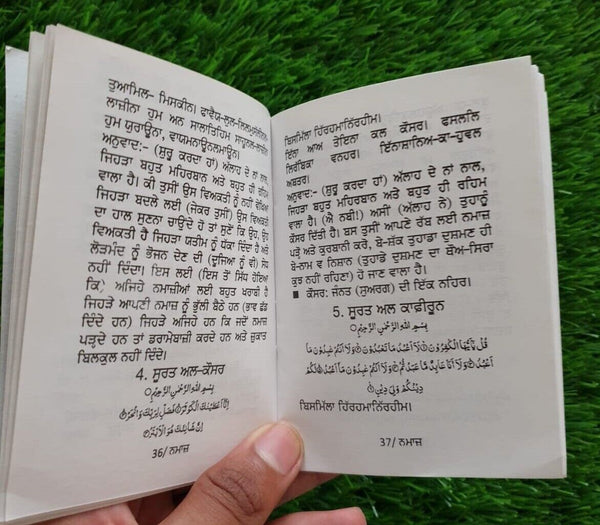 ਤੁਆਮਿਲ- ਮਿਸਕੀਨ। ਫਾਵੈਯ-ਲੁਲ-ਲਿਲਮੁਸੱਲੀਨਲ
ਲਾਜ਼ੀਨਾ ਹੁਮ ਅਨ ਸਾਲਾਤਿਹਿਮ ਸਾਹੂਨਲ-ਲਾਜ਼ੀਨ
ਹੁਮ ਯੁਰਾਊਨਾ, ਵਾਯਮਨਾਊਨਲਮਾਊਨ।
ਅਨੁਵਾਦ:- (ਸ਼ੁਰੂ ਕਰਦਾ ਹਾਂ) ਅੱਲਾਹ ਦੇ ਨਾਂ ਨਾਲ,
ਜਿਹੜਾ ਬਹੁਤ ਮਹਿਰਬਾਨ ਅਤੇ ਬਹੁਤ ਹੀ ਰਹਿਮ
ਵਾਲਾ ਹੈ। ਕੀ ਤੁਸੀਂ ਉਸ ਵਿਅਕਤੀ ਨੂੰ ਨਹੀਂ ਵੇਖਿਆ
ਜਿਹੜਾ ਬਦਲੇ ਲਈ (ਜੇਕਰ ਤੁਸੀਂ) ਉਸ ਵਿਅਕਤੀ
ਦਾ ਹਾਲ ਸੁਣਨਾ ਚਾਉਂਦੇ ਹੋ ਤਾਂ ਸੁਣੋ ਕਿ ਉਹ, ਉਹ
ਵਿਅਕਤੀ ਹੈ ਜਿਹੜਾ ਯਤੀਮ ਨੂੰ ਧੱਕਾ ਦਿੰਦਾ ਹੈ ਅਤੇ
ਲੋੜਮੰਦ ਨੂੰ ਭੋਜਨ ਦੇਣ ਦੀ (ਦੂਜਿਆ ਨੂੰ ਵੀ) ਸੇਧ
ਨਹੀਂ ਦਿੰਦਾ। ਇਸ ਲਈ (ਇਸ ਤੋਂ ਸਿੱਧ ਹੋਇਆ
ਕਿ) ਅਜਿਹੇ ਨਮਾਜ਼ੀਆਂ ਲਈ ਬਹੁਤ ਖਰਾਬੀ ਹੈ
ਜਿਹੜੇ ਆਪਣੀ ਨਮਾਜ਼ ਨੂੰ ਭੁੱਲੀ ਬੈਠੇ ਹਨ (ਭਾਵ ਛੱਡ
ਦਿੰਦੇ ਹਨ) ਜਿਹੜੇ ਅਜਿਹੇ ਹਨ ਕਿ ਜਦੋਂ ਨਮਾਜ਼
ਪੜ੍ਹਦੇ ਹਨ ਤਾਂ ਡਰਾਮੇਬਾਜ਼ੀ ਕਰਦੇ ਹਨ ਅਤੇ ਜ਼ਕਾਤ
ਬਿਲਕੁਲ ਨਹੀਂ ਦਿੰਦੇ।
4. ਸੂਰਤ ਅਲ-ਕੌਸਰ
بِسْمِ اللهِ الرَّحْمٰنِ الرَّحِيْمِ
اِنَّا اَعْطَيْنٰكَ الْكَوْثَرَ فَصَلِّ لِرَبِّكَ وَانْحَرْ
اِنَّ شَانِئَكَ هُوَ الْاَبْتَرُ
36/ ਨਮਾਜ਼
ਬਿਸਮਿੱਲਾ ਹਿੱਰਹਮਾਨਿੱਰਹੀਮ।
ਇੱਨਾ ਆਅ ਤੇਇਨਾ ਕਲ ਕੌਸਰ। ਫਸਲਲਿ
ਲਿਰੱਬਿਕਾ ਵਨਹਰ। ਇੱਨਾਸ਼ਾਨਿਅ-ਕਾ-ਹੁਵਲ
ਅਬਤਰ।
ਅਨੁਵਾਦ:- (ਸ਼ੁਰੂ ਕਰਦਾ ਹਾਂ) ਅੱਲਾਹ ਦੇ ਨਾਂ ਨਾਲ,
ਜਿਹੜਾ ਬਹੁਤ ਮਹਿਰਬਾਨ ਅਤੇ ਬਹੁਤ ਹੀ ਰਹਿਮ
ਵਾਲਾ ਹੈ। (ਐ ਨਬੀ!) ਅਸੀਂ (ਅੱਲਾਹ ਨੇ) ਤੁਹਾਨੂੰ
ਕੌਸਰ ਦਿੱਤੀ ਹੈ। ਬਸ ਤੁਸੀਂ ਆਪਣੇ ਰੱਬ ਲਈ ਨਮਾਜ਼
ਪੜੋਂ ਅਤੇ ਕੁਰਬਾਨੀ ਕਰੋ, ਬੇ-ਸ਼ੱਕ ਤੁਹਾਡਾ ਦੁਸ਼ਮਣ ਹੀ
ਬੇ-ਨਾਮ ਵ ਨਿਸ਼ਾਨ (ਤੁਹਾਡੇ ਦੁਸ਼ਮਣ ਦਾ ਥੋਅ-ਸਿਰਾ
ਕੁਝ ਨਹੀਂ ਰਹਿਣਾ) ਹੋ ਜਾਣ ਵਾਲਾ ਹੈ।
■ ਕੌਸਰ: ਜੰਨਤ (ਸੁਅਰਗ) ਦੀ ਇੱਕ ਨਹਿਰ।
5. ਸੂਰਤ ਅਲ ਕਾਫ਼ੀਰੂਨ
بِسْمِ اللهِ الرَّحْمٰنِ الرَّحِيْمِ
قُلْ يٰٓاَيُّهَا الْكٰفِرُوْنَ لَآ اَعْبُدُ مَا تَعْبُدُوْنَ وَلَآ اَنْتُمْ عٰبِدُوْنَ مَآ
اَعْبُدُ وَلَآ اَنَا عَابِدٌ مَّا عَبَدْتُّمْ وَلَآ اَنْتُمْ عٰبِدُوْنَ مَآ اَعْبُدُ لَكُمْ
دِيْنُكُمْ وَلِيَ دِيْنِ
ਬਿਸਮਿੱਲਾ ਹਿੱਰਹਮਾਨਿੱਰਹੀਮ।
37/ ਨਮਾਜ਼